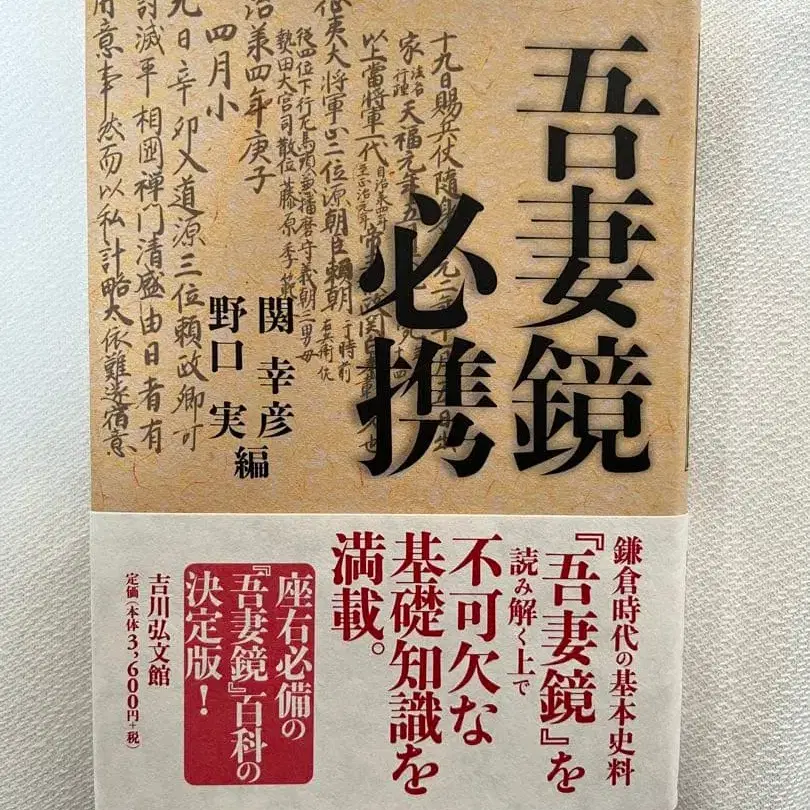 吾妻鏡
必携
関 幸彦
野口 実
編
十九日賜兵仗随身
家
法名
行理
天福元年五
以上當將軍一代
征夷大將軍正二位源朝臣頼朝
于時前
右兵衛佐
從四位下行左馬頭兼播磨守義朝三男母
熱田大宮司散位藤原季範
治承四年庚子
四月小
九日辛卯入道源三位頼政卿可
討滅平相國禅門清盛由日者有
用意事然而以私計略大依難遂宿意
鎌倉時代の基本史料
『吾妻鏡』を
読み解く上で
不可欠な
基礎知識を
満載。
座右必備の
『吾妻鏡』百科の
決定版！
吉川弘文館
定価（本体3,600円+税）